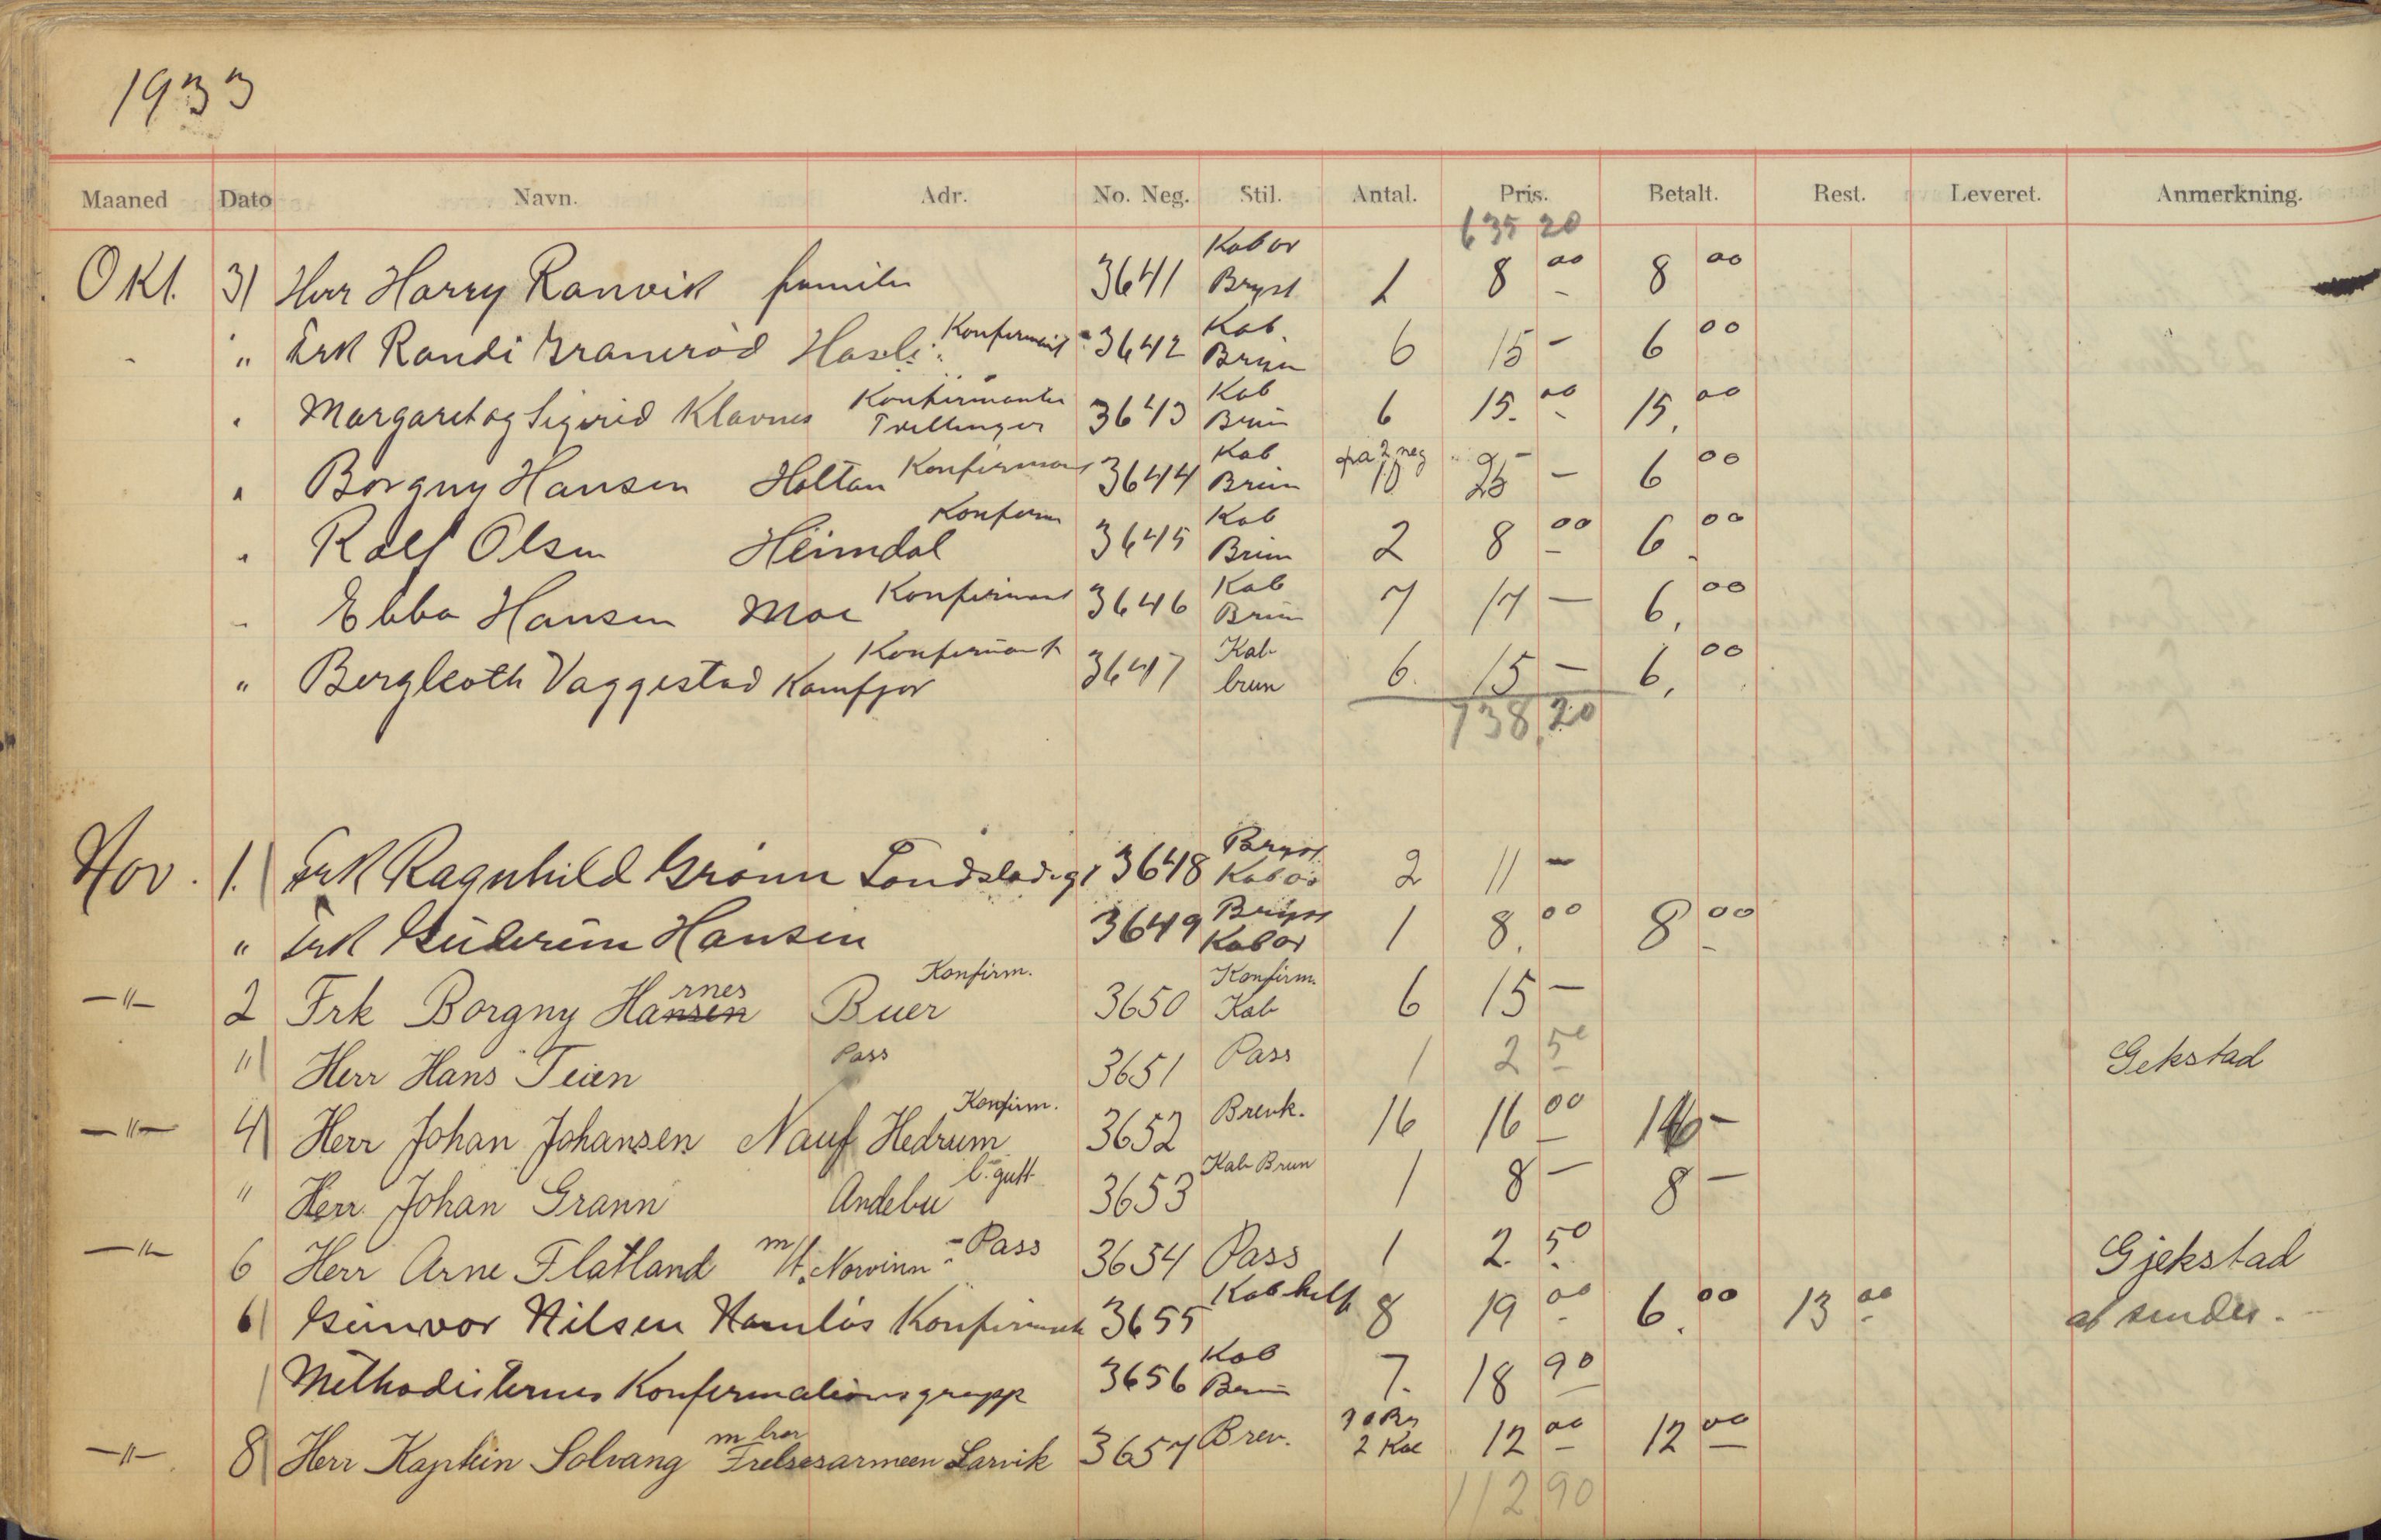 1933
Maaned Dato Navn. Adr. No. Neg. Stil. Antal. Pris. Betalt. Rest. Leveret. Anmerkning.
635 20
Okt. 31 Herr Harry Ranvik familie 3641 Kabor Bryst 1 8 00 8 00
" Frk Randi Granerød Hasle Konfirmant 3642 Kab Brun 6 15 – 6 00
" Margaret og Sigurid Klavnes Konfirmanter Tvillinger 3643 Kab Brun 6 15. 00 15, 00
" Borgny Hansen Holtan Konfirmant 3644 Kab Brun på 2 neg 10 25 – 6 00
" Ralf Olsen Heimdal Konfirm 3645 Kab Brun 2 8 00 6 00
" Ebba Hansen Moe Konfirmant 3646 Kab Brun 7 17 – 6, 00
" Bergleoth Vaggestad Kamfjor Konfirmant 3647 Kab brun 6. 15 – 6, 00
738,20
Nov. 1. Frk Ragnhild Grønn 3648 Bryst Kabor 2 11 –
" Frk Guderun Hansen 3649 Bryst Kabor 1 8, 00 8 00
–"– 2 Frk Borgny Hansen rnes Buer Konfirm. 3650 Konfirm. Kab 6 15 –
" Herr Hans Teien Pass 3651 Pass 1 2 50 Gekstad
–"– 4 Herr Johan Johansen Nauf Hedrum Konfirm. 3652 Brevk. 16 16 00 16 –
" Herr Johan Grann Andebu l. gutt 3653 Kab Brun 1 8 – 8 –
–"– 6 Herr Arne Flatland m/t. Norvinn – Pass 3654 Pass 1 2. 50 Gjekstad
6 Gunvor Nilsen Namløs Konfirmant 3655 Kab helf 8 19 00 6. 00 13 00 at sendes.
Methodisternes Konfirmationsgrupp 3656 Kab Brun 7. 18 90
–"– 8 Herr Kaptein Solvang m bror Frelsesarmeen Larvik 3657 Brev. 2 Kab 12 00 12 00
112 90